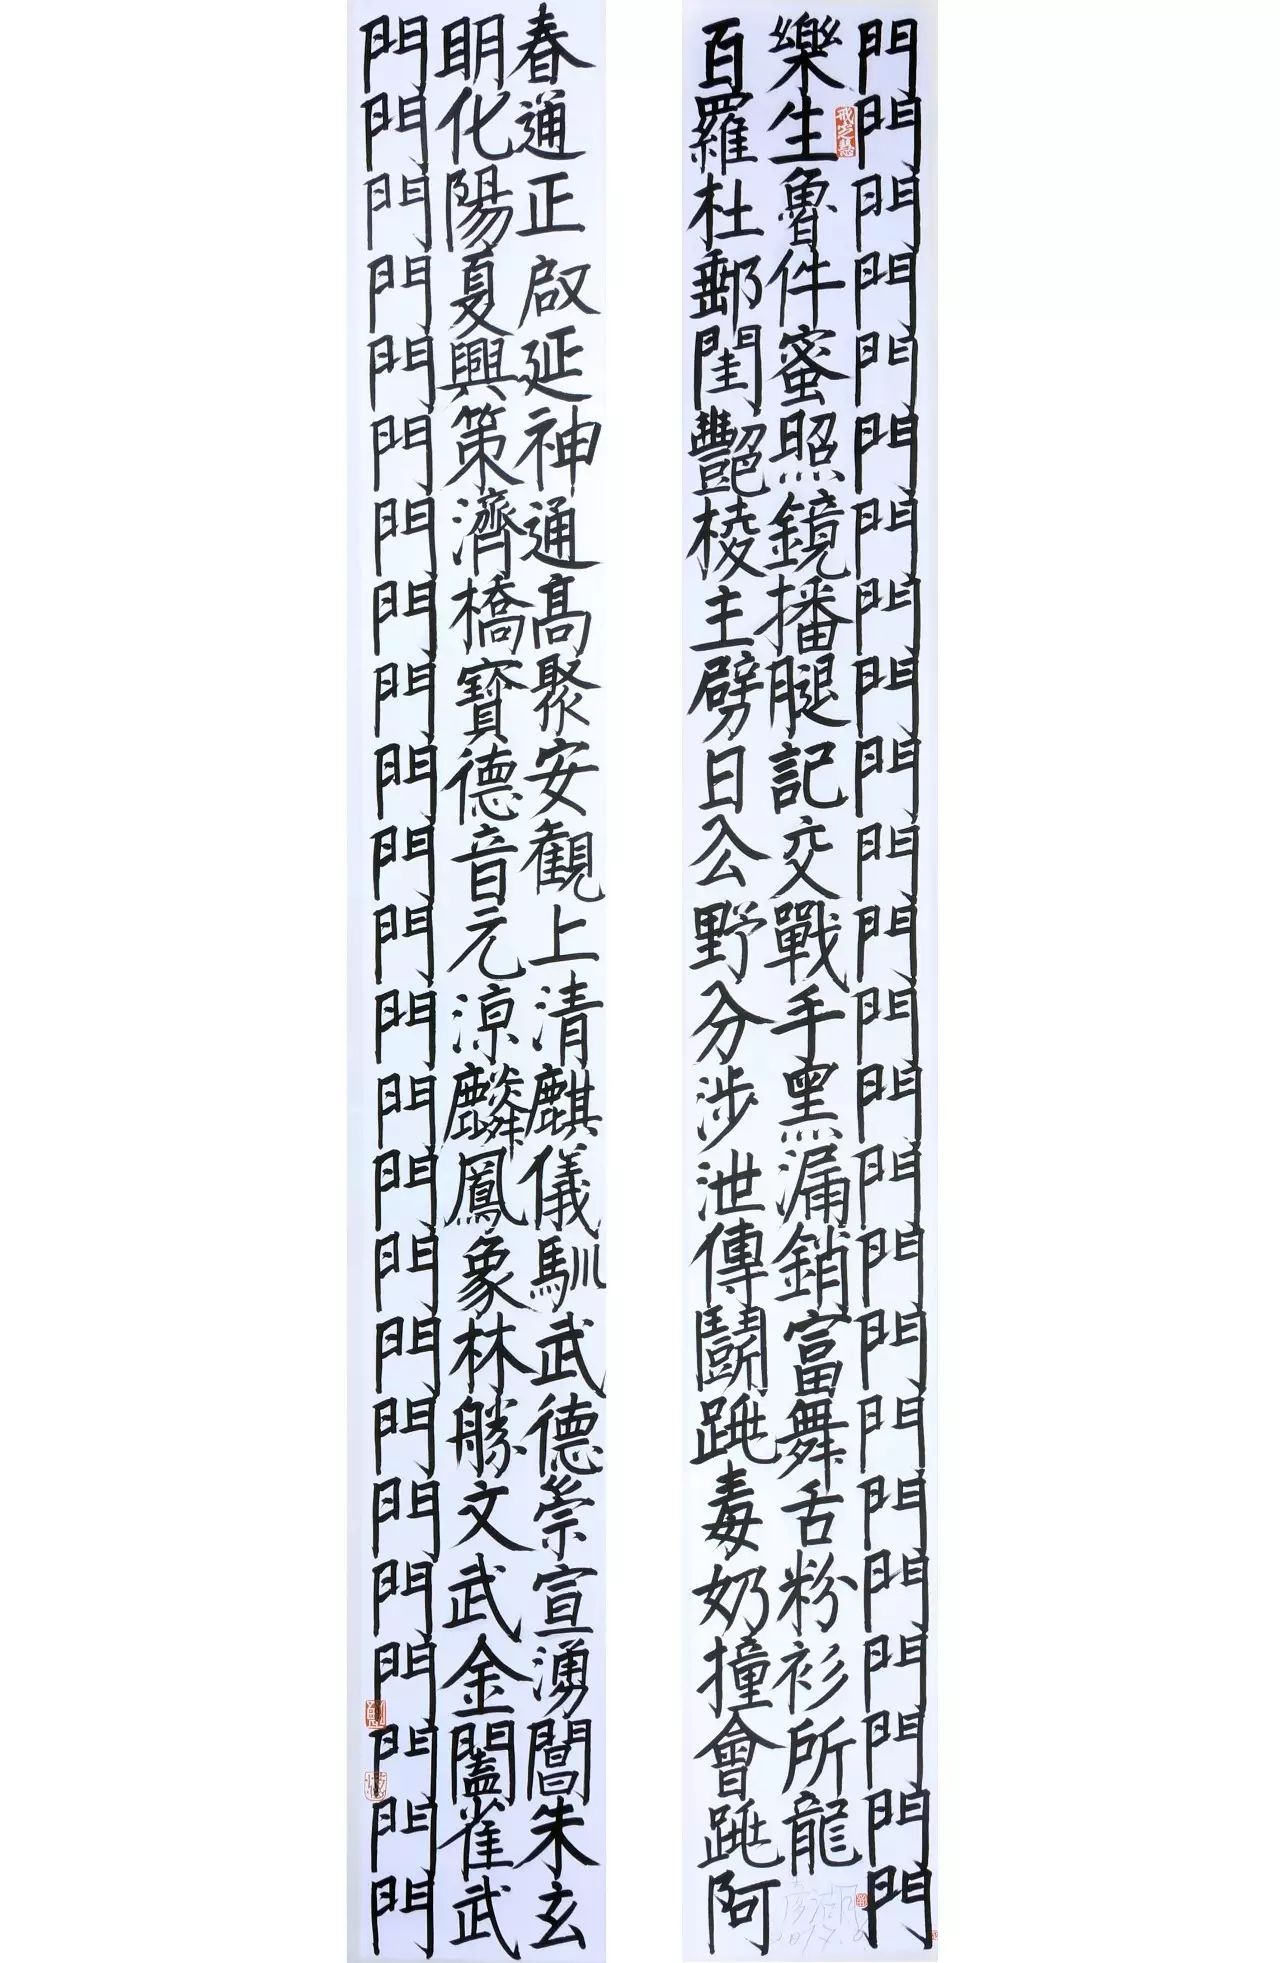 門門門門門門門門門門門門門門門門門門門門門門門門
樂生魯件蜜照鏡播腿記交戰手黑漏銷富舞舌粉衫所龍
百羅杜郵閨豔棱主劈日公野分涉泄傳鬪跳毒奶撞會跳阿
戒定慧
彦湖
2017.6
春通正啟延神通高聚安觀上清麒儀馴武德崇宣湧閶朱玄
明化陽夏興策濟橋寶德音元涼麟鳳象林勝文武金闔雀武
門門門門門門門門門門門門門門門門門門門門門門門門